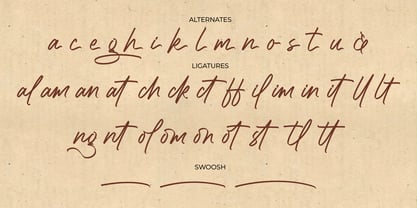 ALTERNATES
a c e g h i k l m n o s t u &
LIGATURES
al am an at ch ck ct ff il im in it ll lt
ng nt ol om on ot st tl tt
SWOOSH